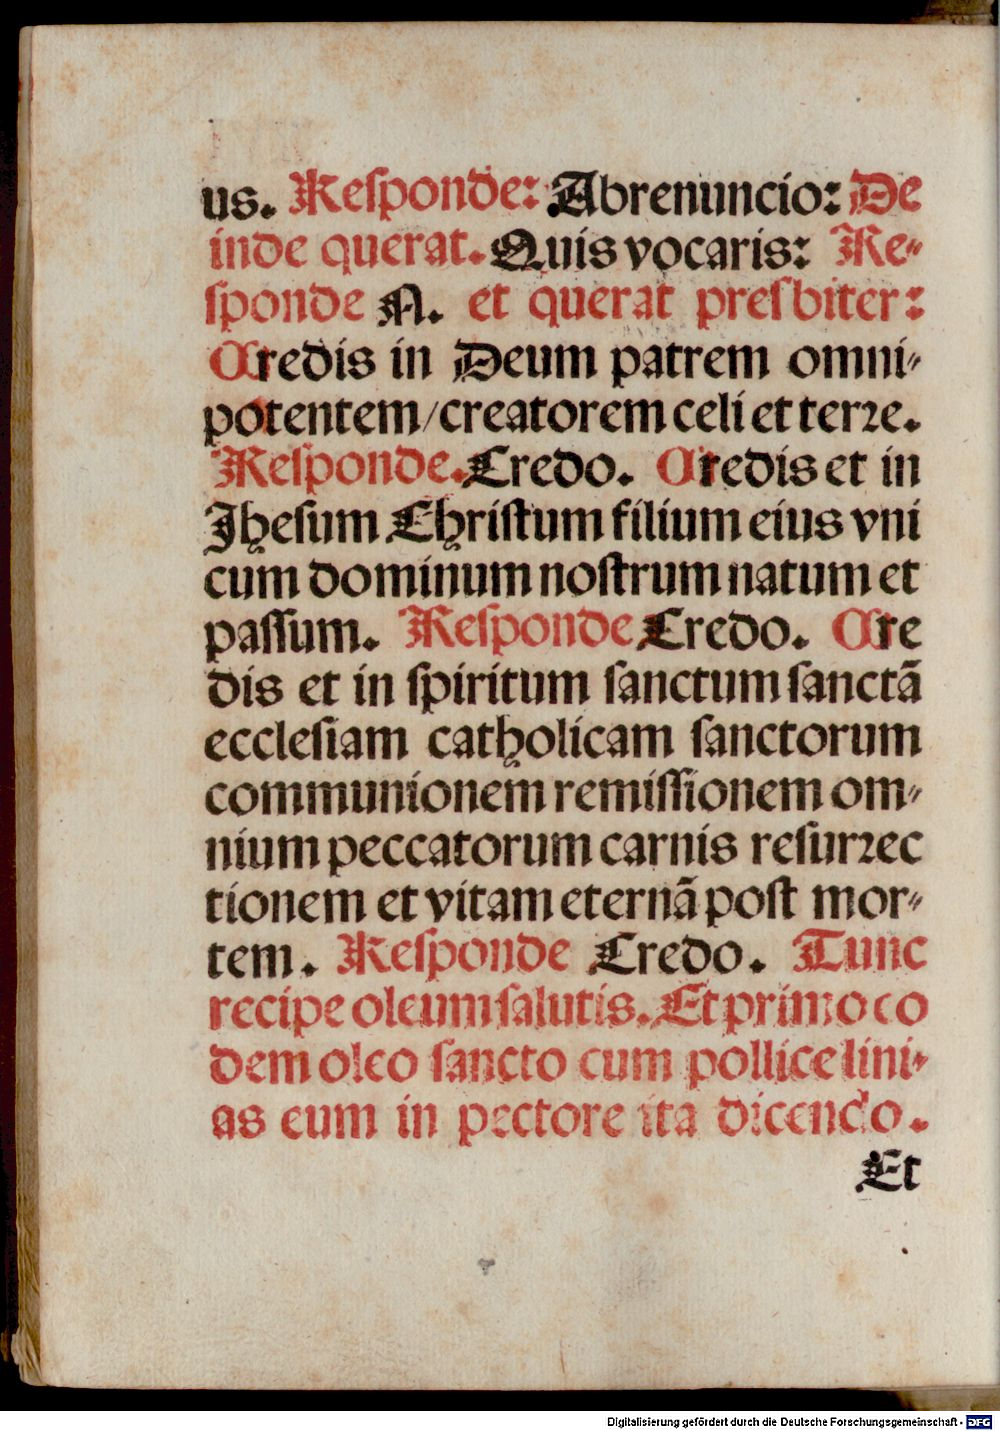 us. Reſponde: Abrenuncio: De
inde querat. Quis vocaris: Re⸗
ſponde N. et querat preſbiter:
Credis in Deum patrem omni⸗
potentem/creatorem celi et terꝛe.
Reſponde. Credo. Credis et in
Jheſum Chriſtum filium eius vni
cum dominum noſtrum natum et
paſſum. Reſponde Credo. Cre
dis et in ſpiritum ſanctum ſanctā
eccleſiam catholicam ſanctorum
communionem remiſſionem om⸗
nium peccatorum carnis reſurꝛec
tionem et vitam eternā poſt mor⸗
tem. Reſponde Credo. Tunc
recipe oleum ſalutis. Et primo eo
dem oleo ſancto cum pollice lini⸗
as eum in pectore ita dicendo.
Et
Digitalisierung gefördert durch die Deutsche Forschungsgemeinschaft - DFG